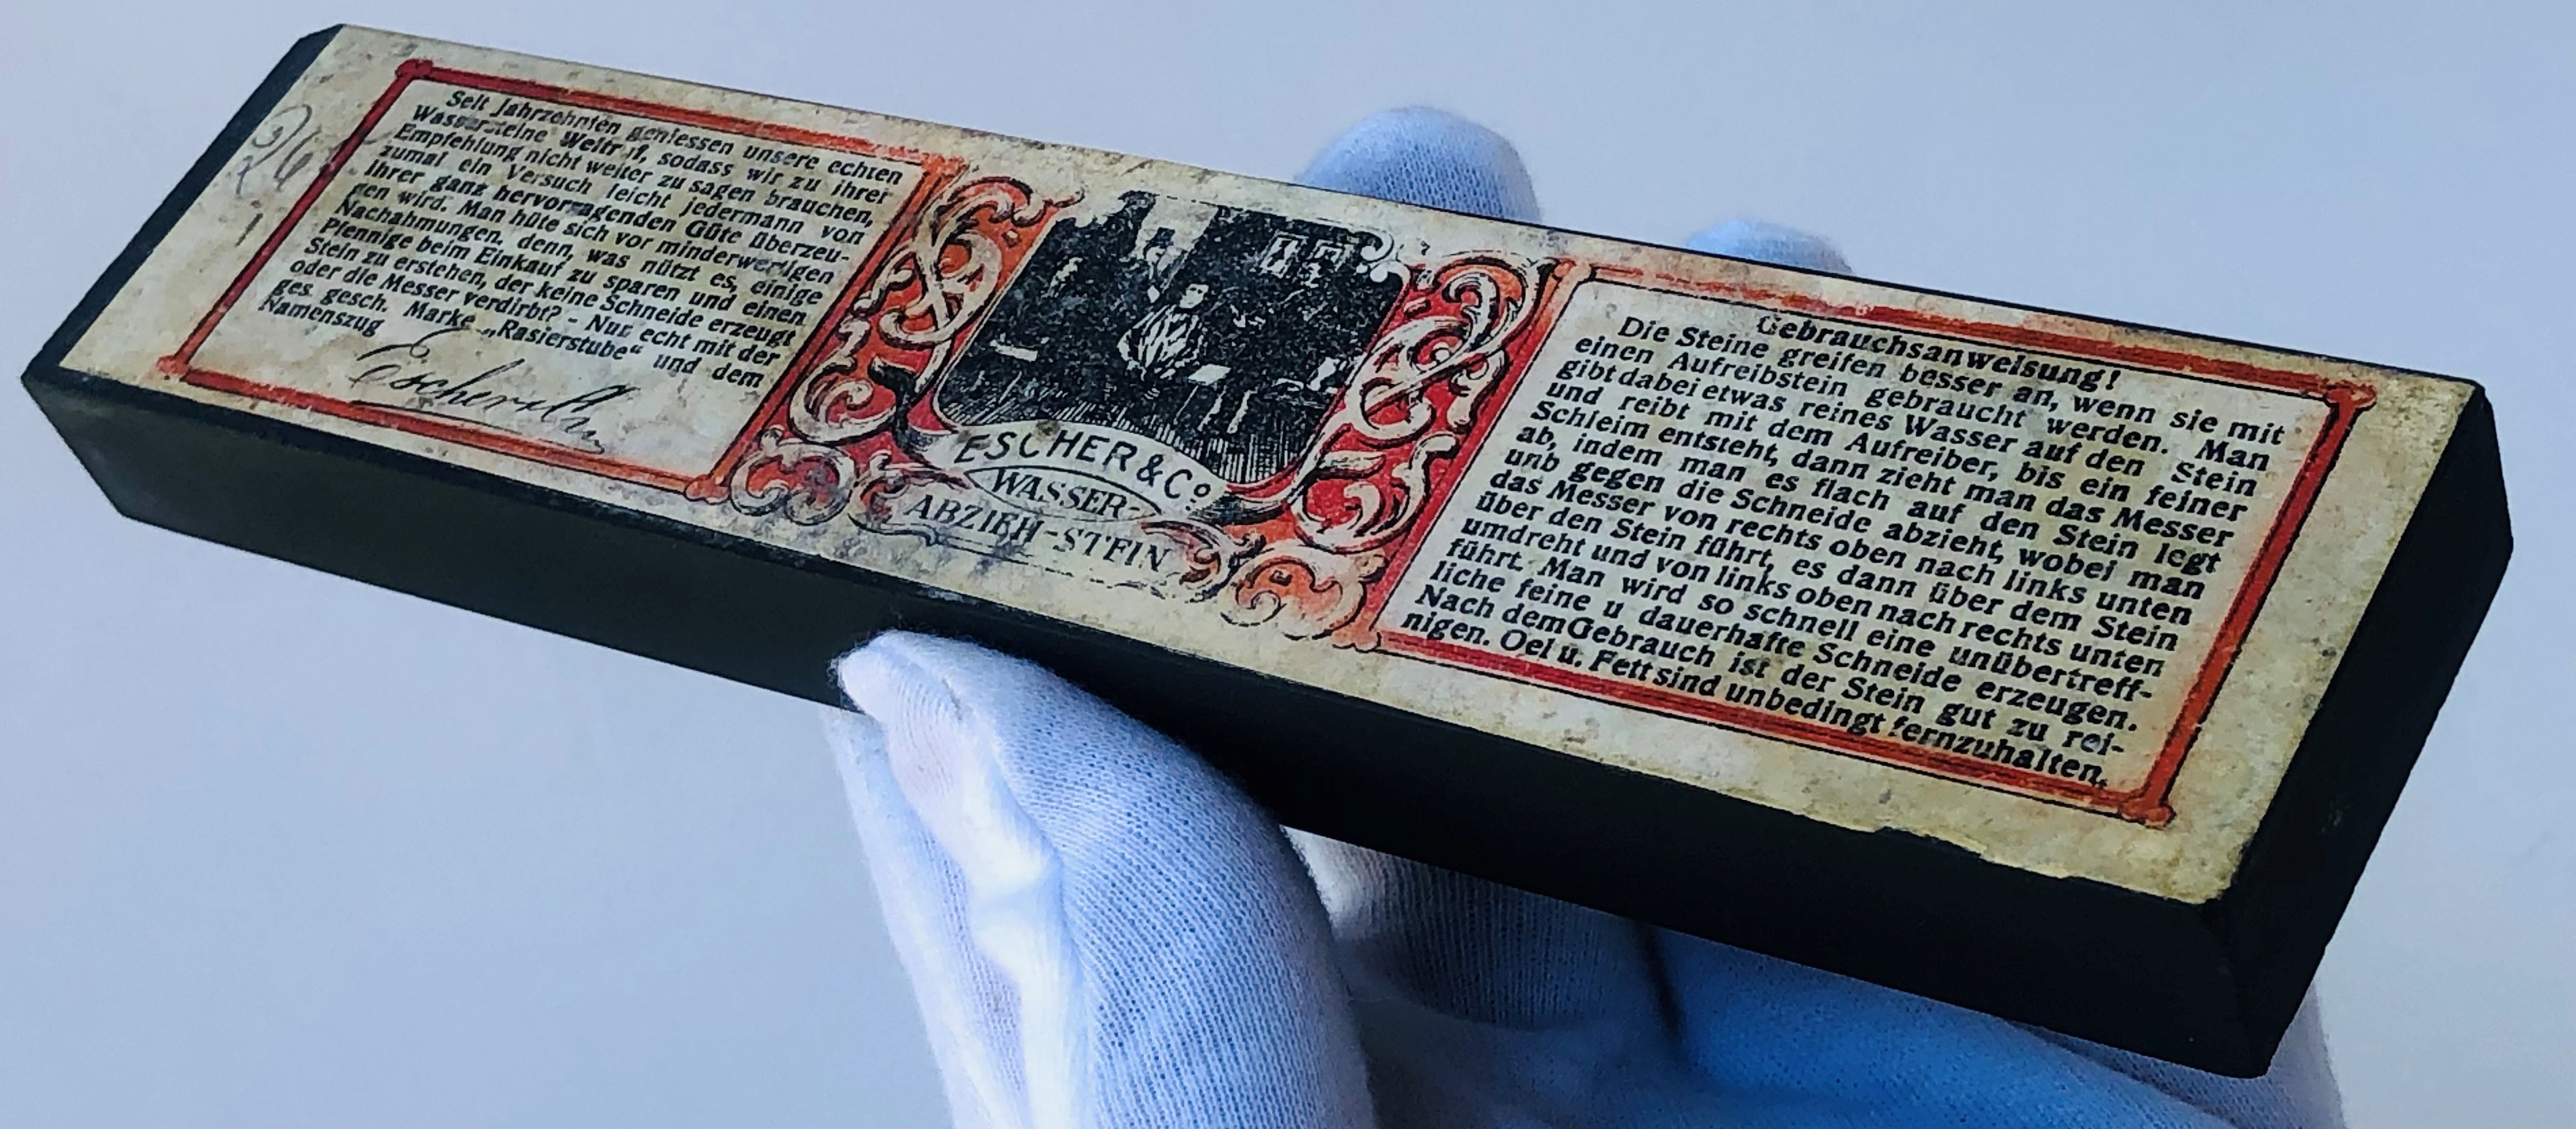 Seit Jahrzehnten geniessen unsere echten
Wassersteine Weltruf, sodass wir zu ihrer
Empfehlung nicht weiter zu sagen brauchen,
zumal ein Versuch leicht jedermann von
ihrer ganz hervorragenden Güte überzeu-
gen wird. Man hüte sich vor minderwertigen
Nachahmungen, denn, was nützt es, einige
Pfennige beim Einkauf zu sparen und einen
Stein zu erstehen, der keine Schneide erzeugt
oder die Messer verdirbt? - Nur echt mit der
ges. gesch. Marke „Rasierstube“ und dem
Namenszug
Escher & Co
ESCHER & Co
WASSER-
ABZIEH-STEIN
Gebrauchsanweisung!
Die Steine greifen besser an, wenn sie mit
einen Aufreibstein gebraucht werden. Man
gibt dabei etwas reines Wasser auf den Stein
und reibt mit dem Aufreiber, bis ein feiner
Schleim entsteht, dann zieht man das Messer
ab, indem man es flach auf den Stein legt
unb gegen die Schneide abzieht, wobei man
das Messer von rechts oben nach links unten
über den Stein führt, es dann über dem Stein
umdreht und von links oben nach rechts unten
führt. Man wird so schnell eine unübertreff-
liche feine u dauerhafte Schneide erzeugen.
Nach dem Gebrauch ist der Stein gut zu rei-
nigen. Oel u. Fett sind unbedingt fernzuhalten.